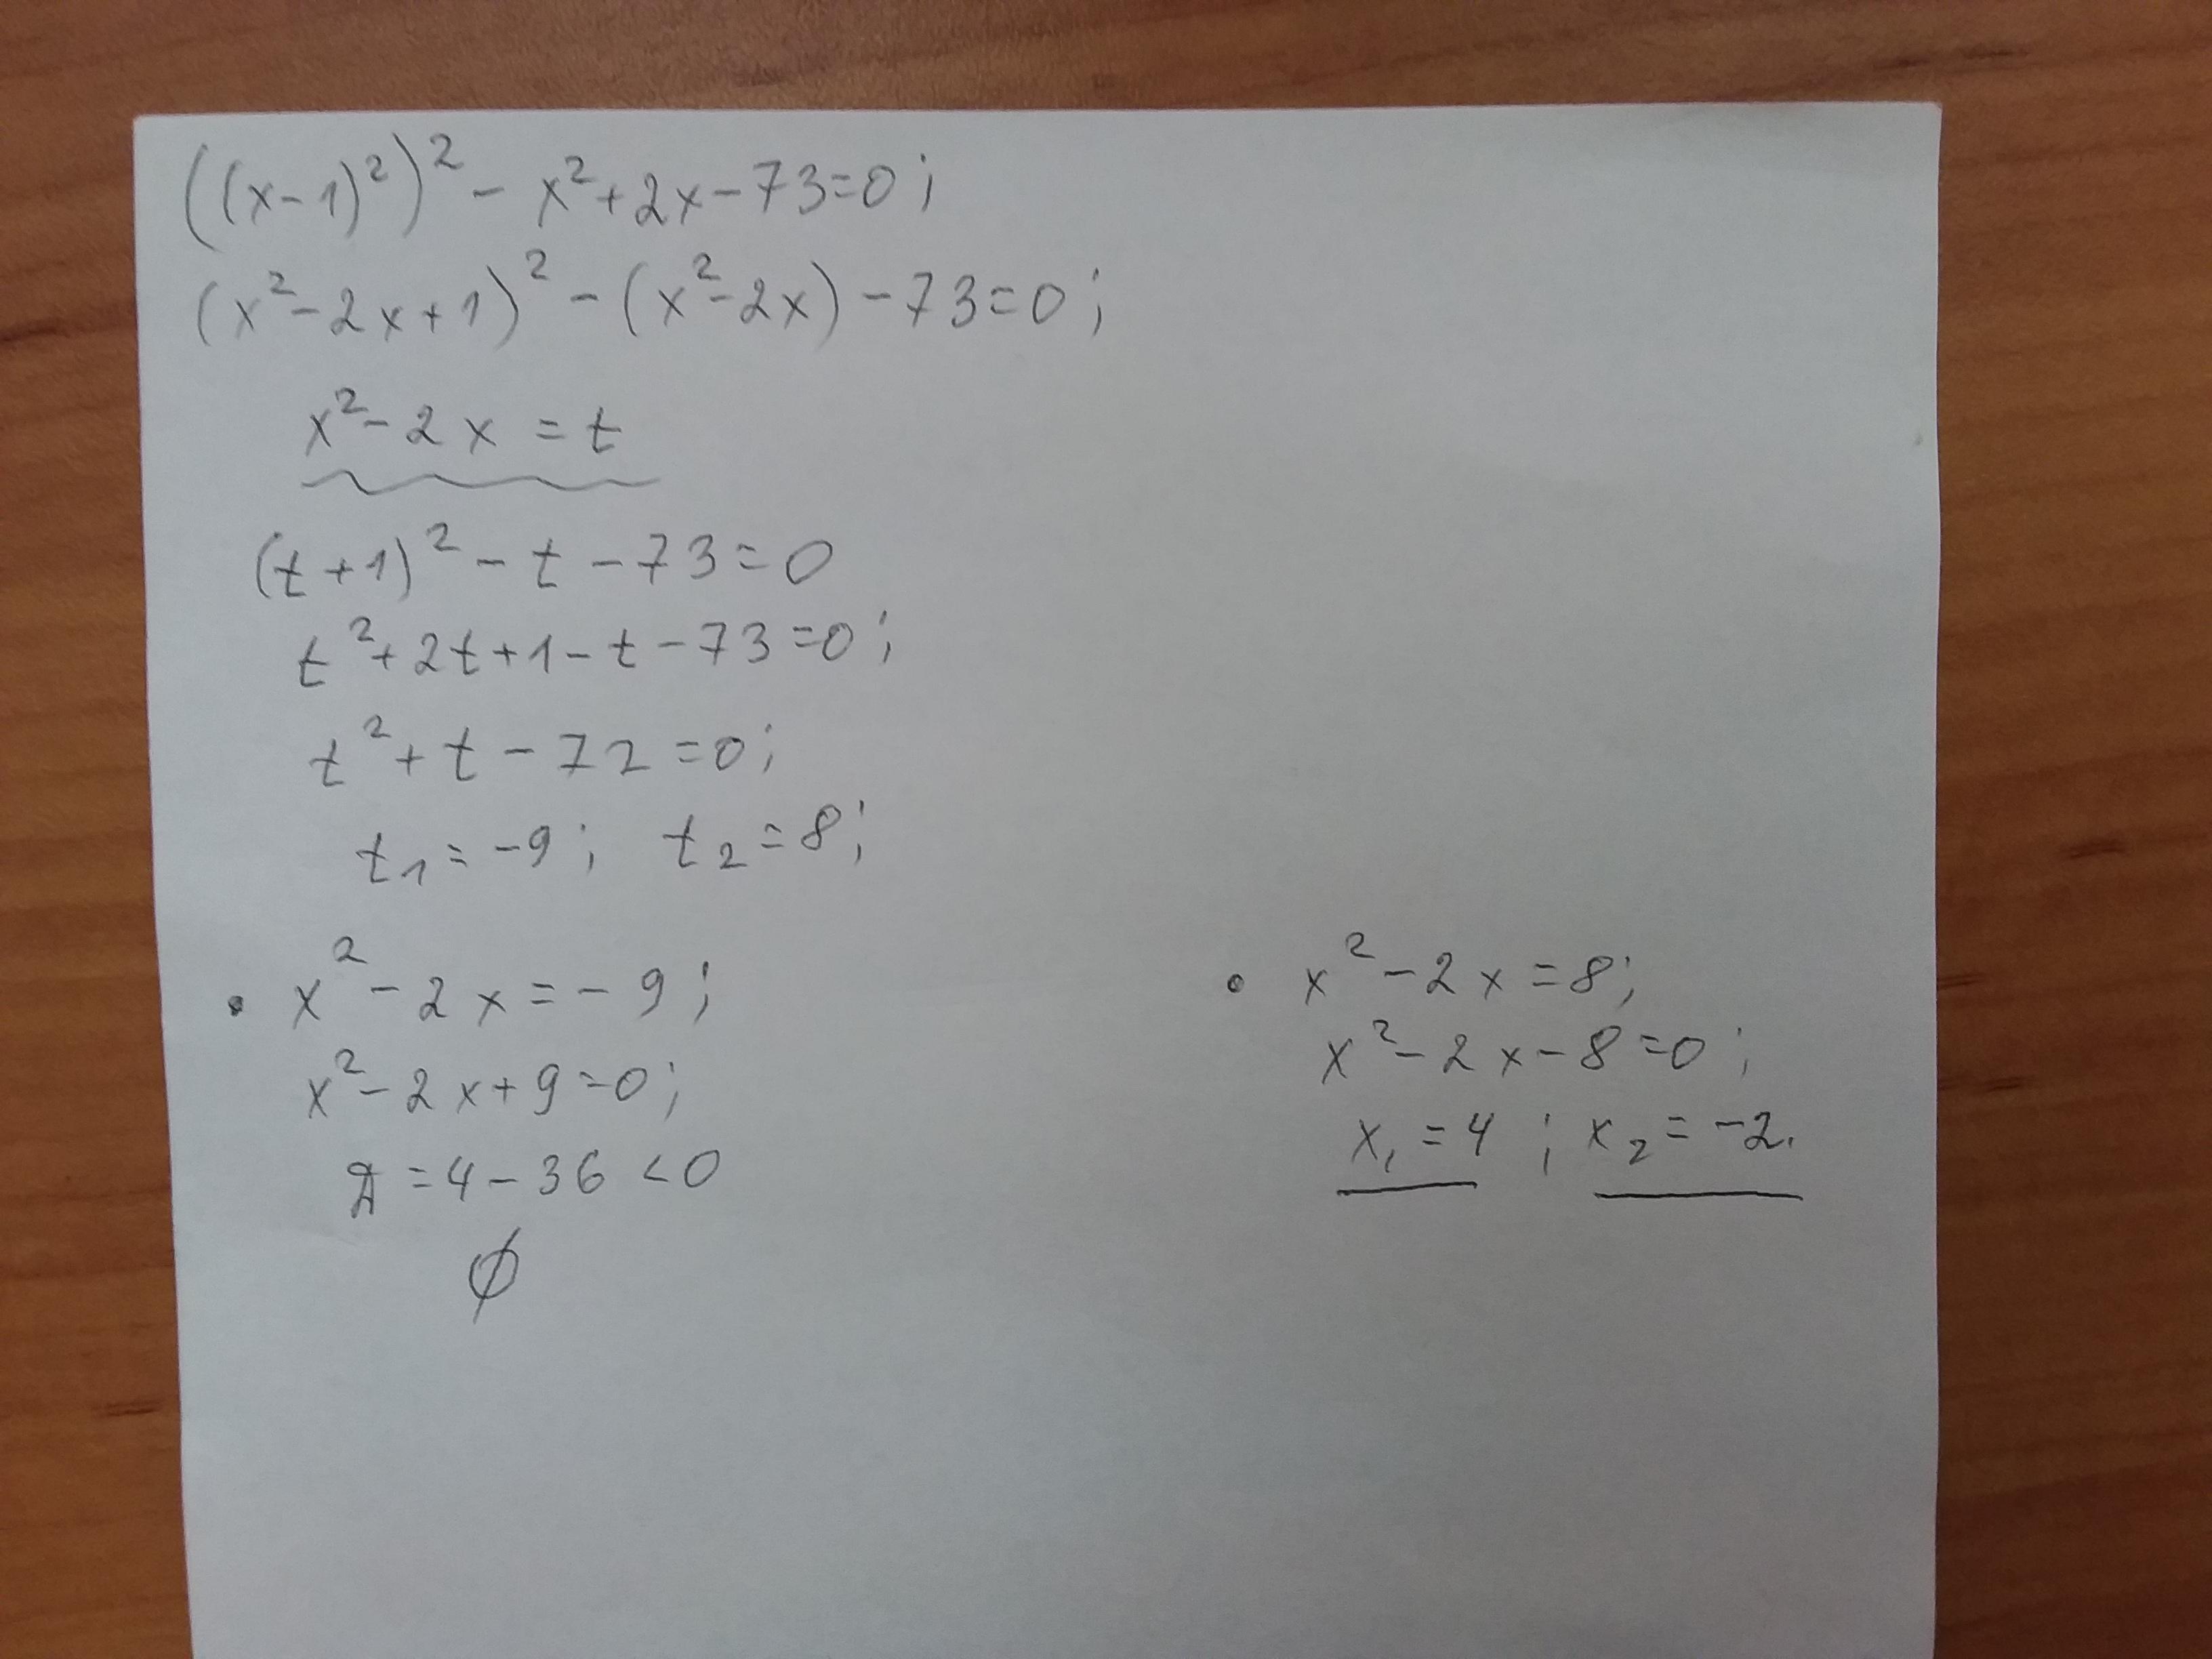 ((x-1)²)² - x²+2x-73=0;
(x²-2x+1)² - (x²-2x) -73=0;
x²-2x = t
(t+1)² - t - 73=0
t²+2t+1-t-73=0;
t²+t-72=0;
t₁=-9; t₂=8;
• x²-2x=-9;
x²-2x+9=0;
Д=4-36<0
∅
• x²-2x=8;
x²-2x-8=0;
x₁=4; x₂=-2.